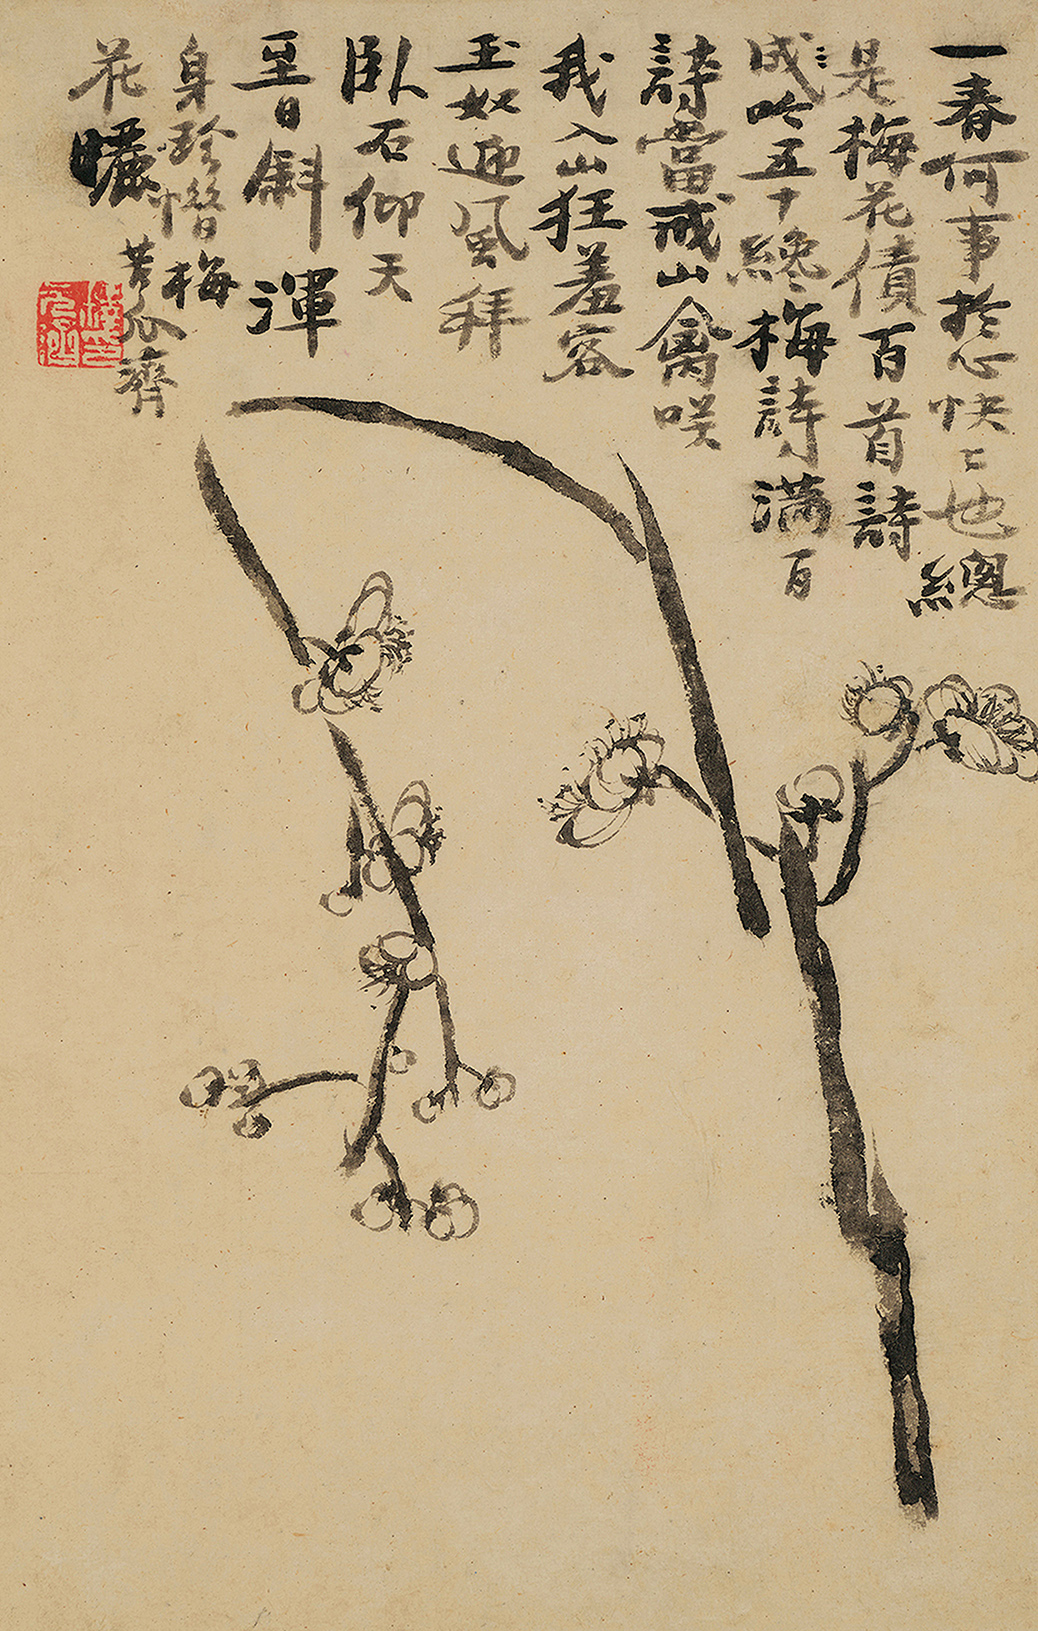 一春何事扵心快〻也總
是梅花債百首詩
成吟五十纔梅詩滿百
詩當戒山禽咲
我入山狂羞客
玉奴迎風拜
臥石仰天
至日斜渾
身珍惜梅
花曬
苦瓜濟